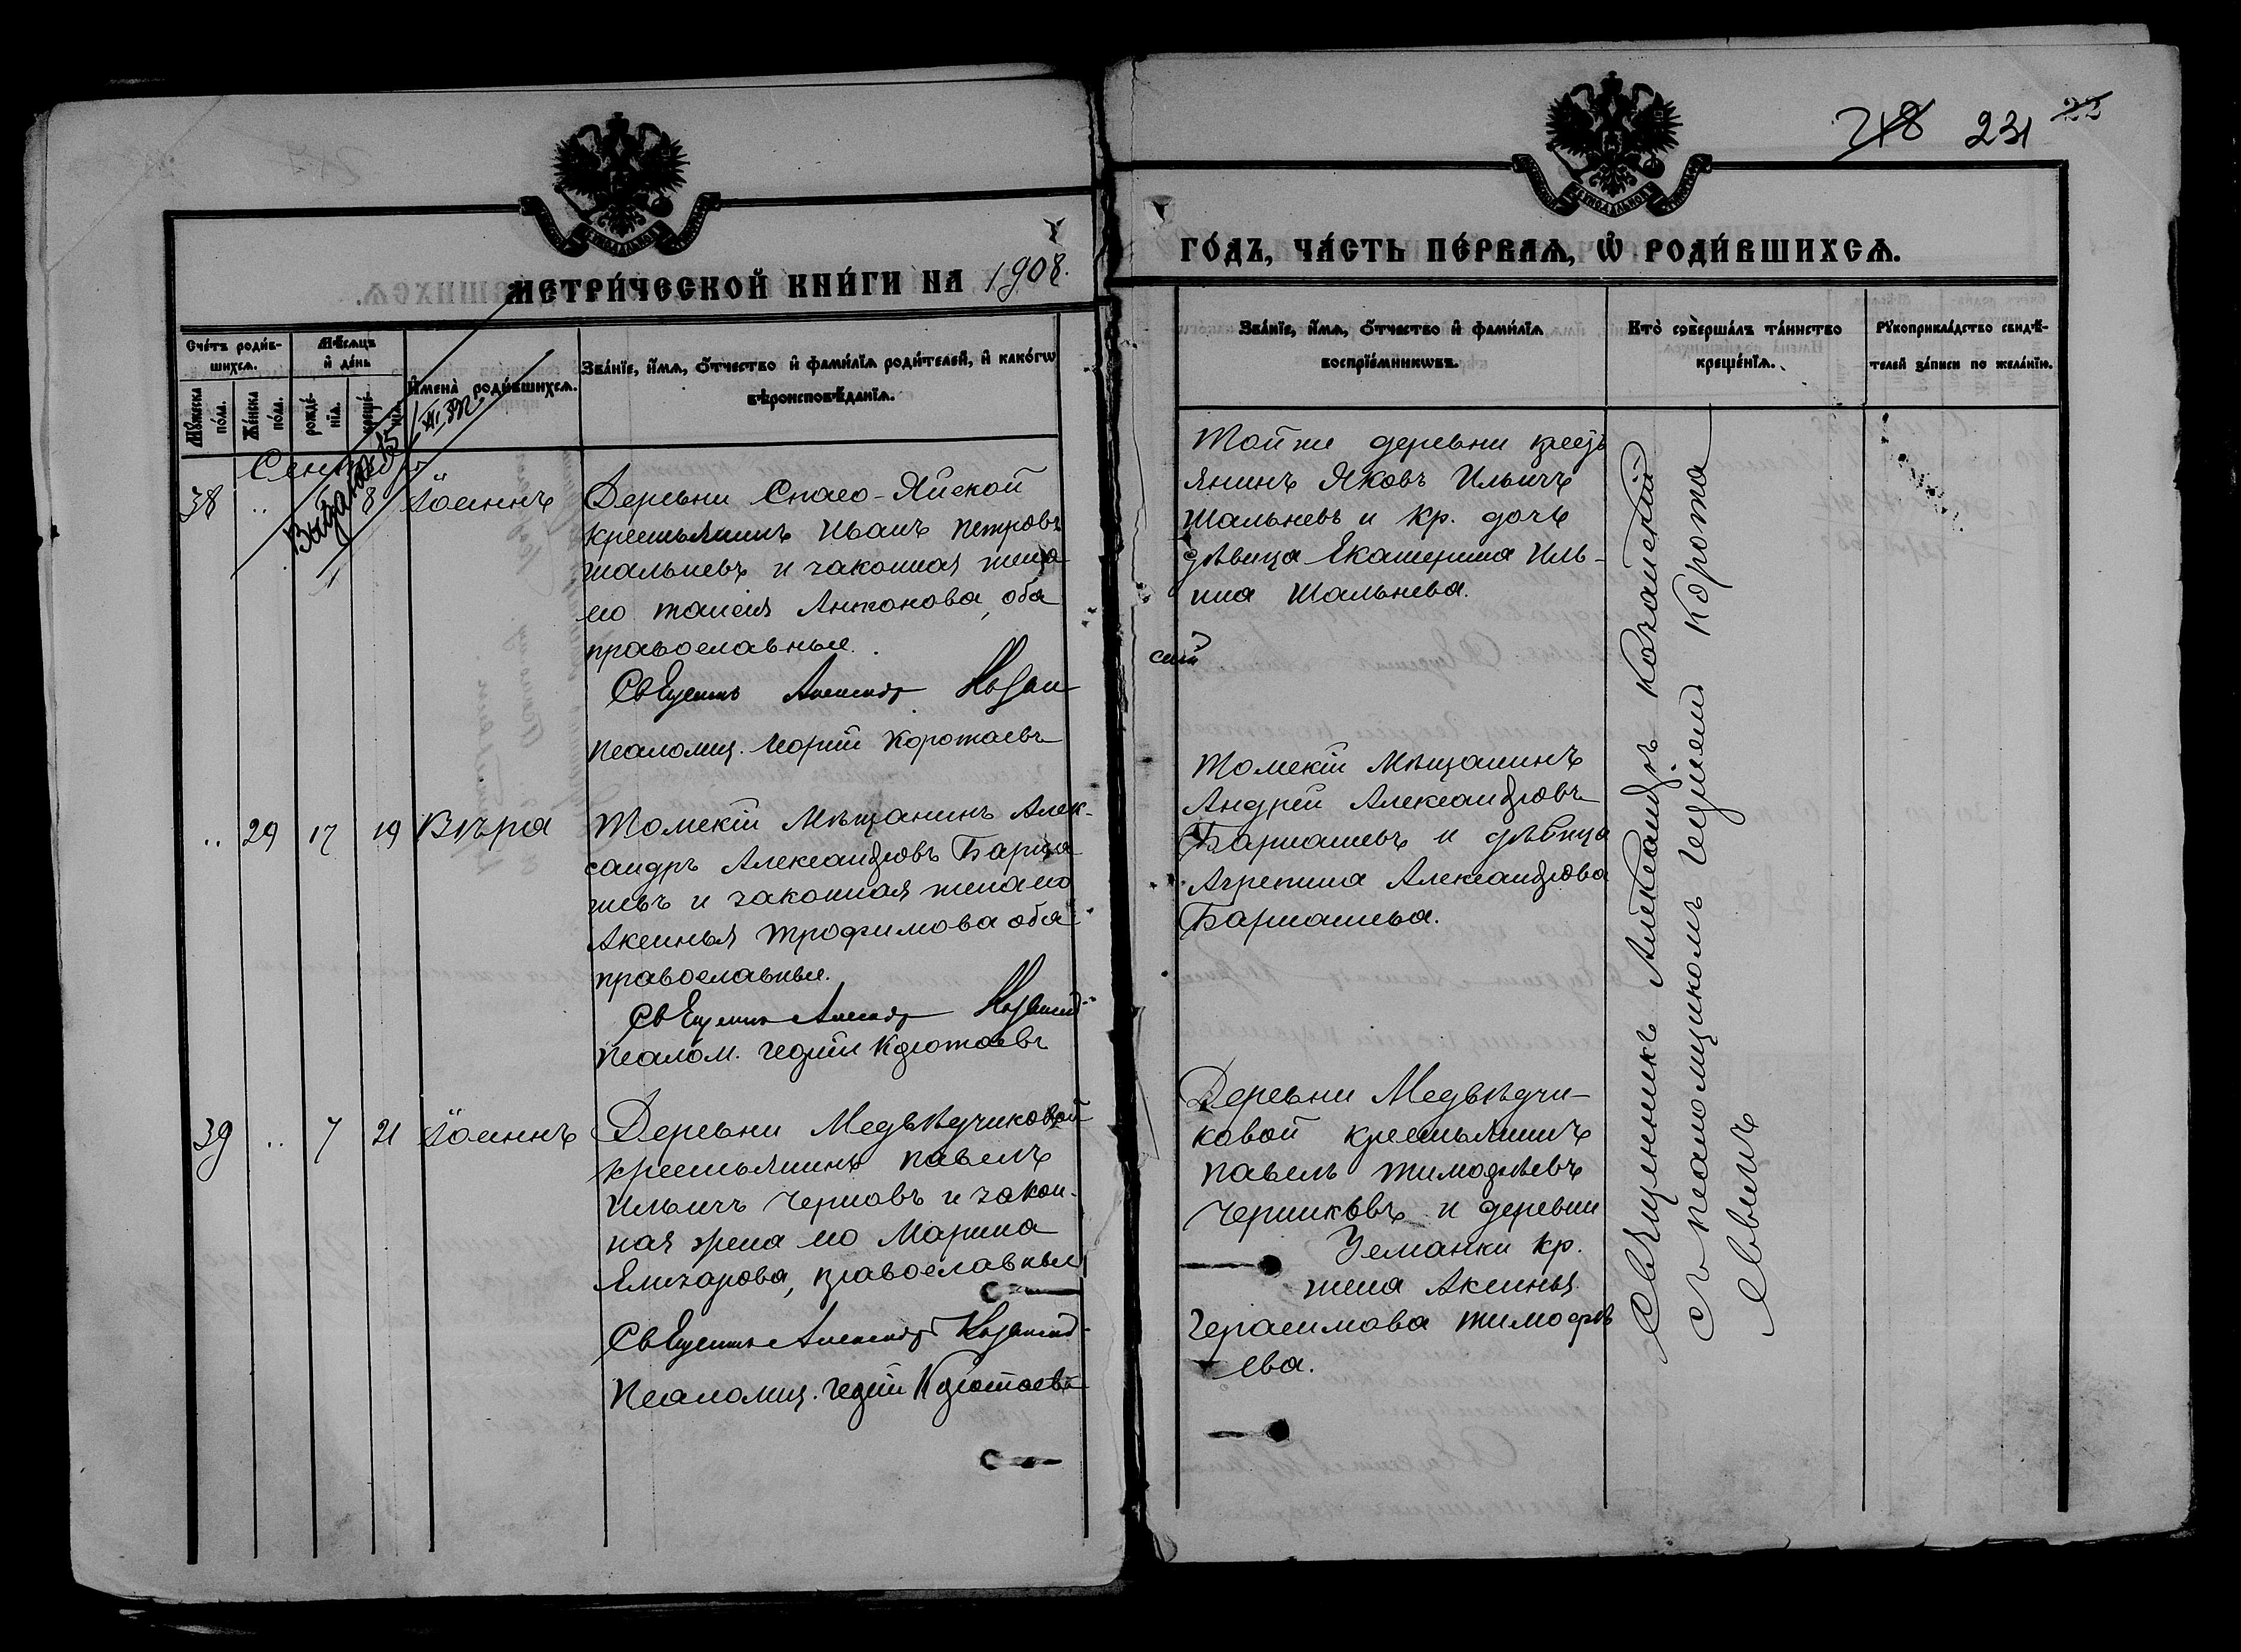 248 231 22
МЕТРИЧЕСКОЙ КНИГИ НА 1908.
ГОДЪ, ЧАСТЬ ПЕРВАЯ, Ѡ РОДИВШИХСЯ.
Счетъ родив-
шихся.
Мѣсяцъ
и день
Мужеска
пола.
Женска
пола.
рожде-
нія.
креще-
нія.
Имена родившихся.
Званіе, имя, отчество и фамилія родителей, и какогѡ
вѣроисповѣданія.
Званіе, имя, отчество и фамилія
воспріемникѡвъ.
Кто совершалъ таинство
крещенія.
Рукоприкладство свидѣ-
телей записи по желанію.
38 " 8 Іоаннъ
Деревни Спасо-Яйской
крестьянинъ Иванъ Петровъ
Шальневъ и законная жена
его Таисія Антонова, оба
православные.
Священникъ Александр Казан
ский
Псаломщ. Георгій Коротаевъ
Той же деревни крест
янинъ Яковъ Ильичъ
Шальневъ и кр. дочь
дѣвица Екатерина Иль-
ина Шальнева.
" 29 17 19 Вѣра
Томскій Мѣщанинъ Алек-
сандръ Александровъ Барна
шевъ и законная жена его
Аксинья Трофимова оба
православные.
Священникъ Александр Казанский
Псалом. Георгій Коротаевъ
Томскій Мѣщанинъ
Андрей Александровъ
Барнашевъ и дѣвица
Агрепина Александрова
Барнашева.
39 " 7 21 Іоаннъ
Деревни Медвѣдчиковой
крестьянинъ Павелъ
Ильичъ Черновъ и закон-
ная жена его Марина
Елизарова, православные
Священникъ Александр Казанский
Псаломщ. Георгій Коротаевъ
Деревни Медвѣдчи-
ковой крестьянинъ
Павелъ Тимофѣевъ
и деревни
Усманки кр.
жена Аксинья
Герасимова Тимофѣ
ева.
Священникъ Александръ Казанскій
съ псаломщикомъ Георгіемъ Корота
евымъ